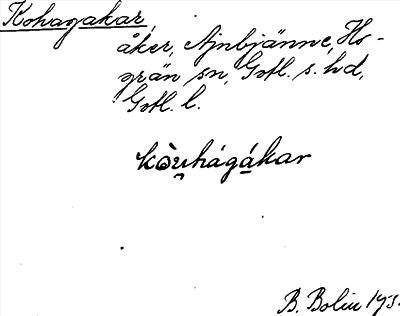 Kohagakar,
åker, Ajnbjänne, Ho-
grän sn, Gotl. s. hd,
Gotl. l.
kòu̯hágákar
B. Bolin 193